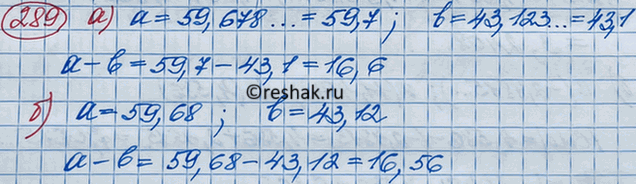 289 а) a = 59,678... = 59,7; b = 43,123... = 43,1
a - b = 59,7 - 43,1 = 16,6
©reshak.ru
б) a = 59,68; b = 43,12
a - b = 59,68 - 43,12 = 16,56